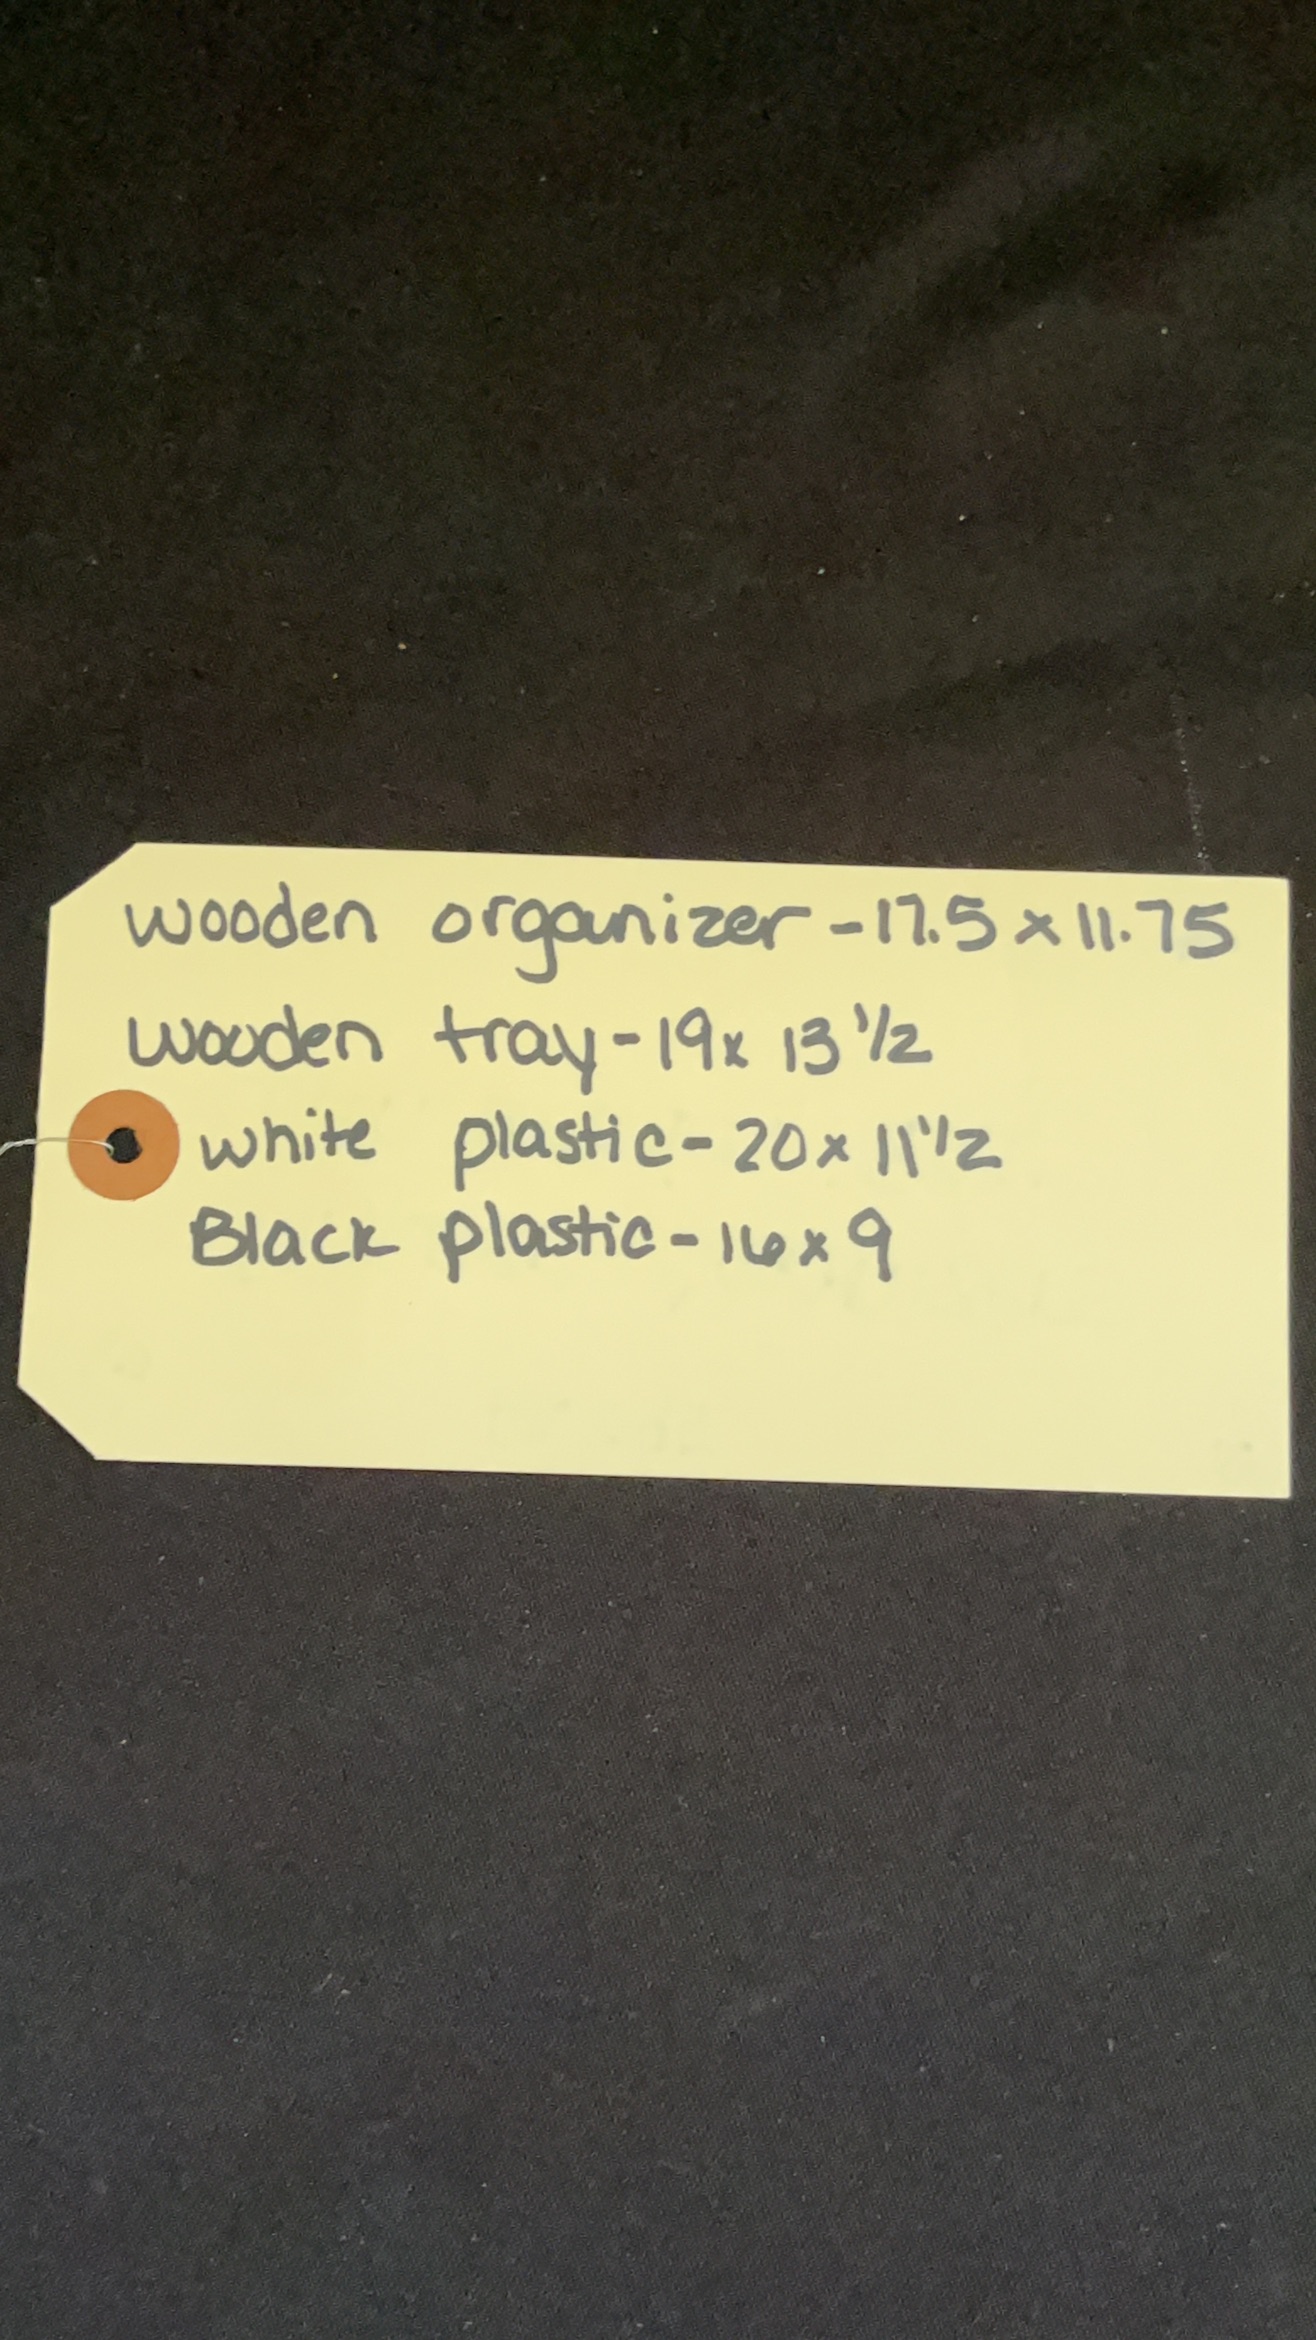 wooden organizer - 17.5 x 11.75
wooden tray - 19 x 13 1/2
white plastic - 20 x 11 1/2
Black plastic - 16 x 9